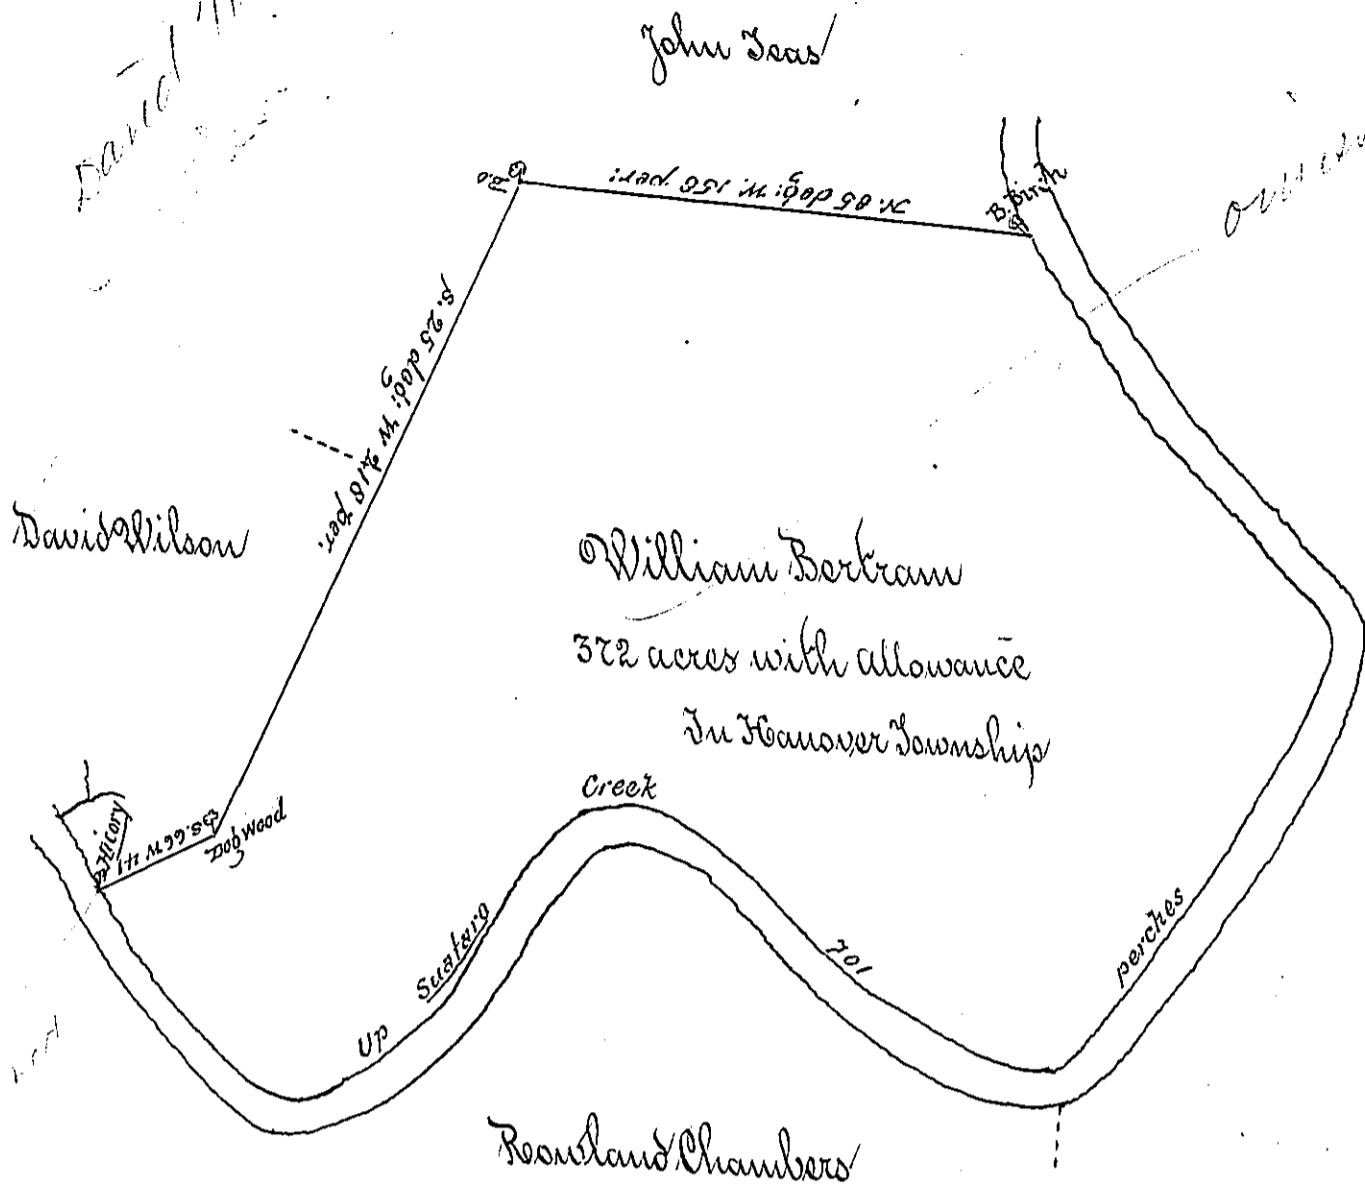 David
John Teas
B.O.
N. 85 deg: W. 156 per:
B. Birch
S. 25 deg: W 218 per.
David Wilson
William Bertram
372 acres with allowance
In Hanover Township
Creek
Hicory
S. 66 W 41
Dogwood
Suataro
701
perches
Up
Rowland Chambers